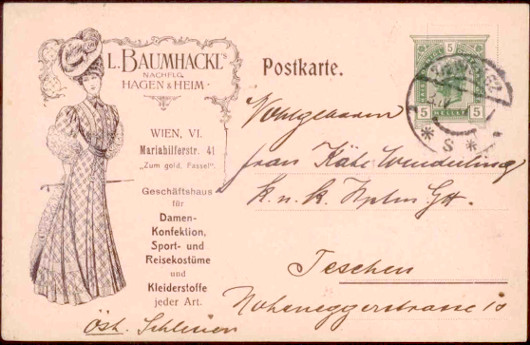 L. BAUMHACKL
NACHFLG.
HAGEN & HEIM
WIEN, VI.
Mariahilferstr. 41
„Zum gold. Fassel".
Geschäftshaus
für
Damen-
Konfektion,
Sport- und
Reisekostüme
und
Kleiderstoffe
jeder Art.
Postkarte.
5
5 HELLER 5
WIEN
S
Wohlgeboren
frau Käte Wenderling
k. u. k. Hptm Gt.
Teschen
Hoheneggerstrasse 10
Öst. Schlesien